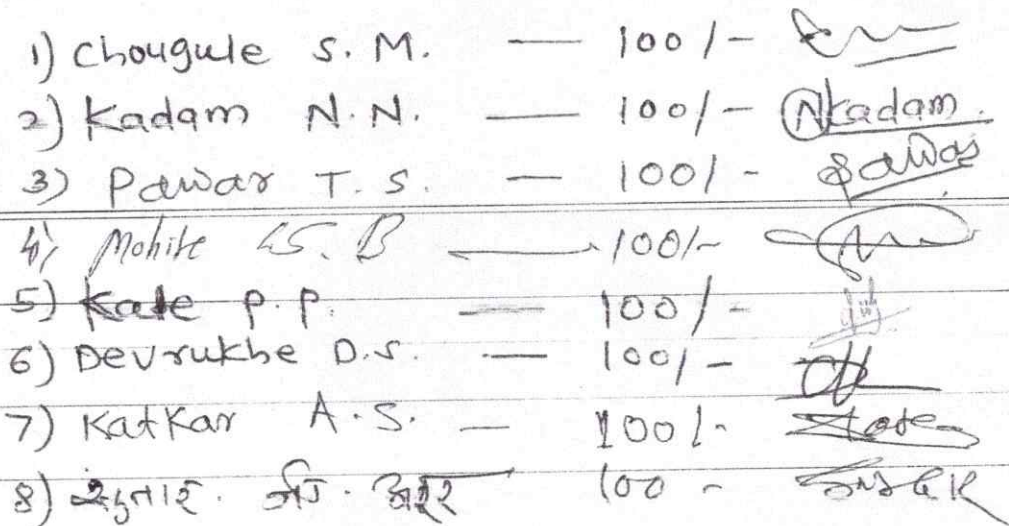 1) Chougule S. M. — 100/-
2) Kadam N. N. — 100/- NKadam.
3) Pawar T. S. — 100/- Pawar
4) Mohite S. B — 100/-
5) Kate P. P. — 100/-
6) Devrukhe D. S. — 100/-
7) Katkar A. S. — 100/-
8) 100 -